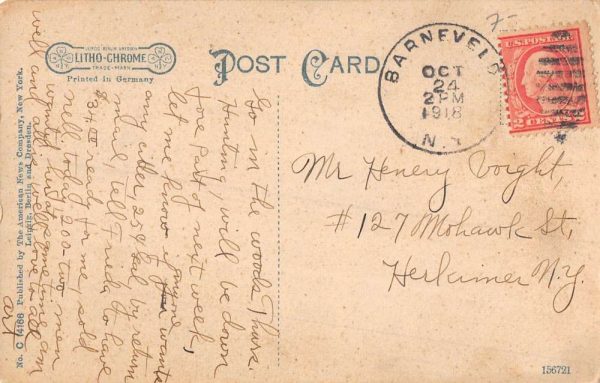 LEIPZIG BERLIN DRESDEN
LITHO-CHROME
TRADE-MARK
Printed in Germany
POST CARD
BARNEVELD
OCT
24
2 PM
1918
N.Y.
7-
U.S. POSTAGE
2 CENTS 2
Mr Henery Voight,
#127 Mohawk St,
Herkimer N.Y.
Go in the woods Thurs.
Hunting, will be down
fore part next week,
let me know if anyone wants
any cider, 25¢ Gal, by return
mail, tell Fred to have
$34 ready for me, sold
nell today 200- two men
wanted
well and love to all
art
No. C 14166 Published by The American News Company, New York.
Leipzig, Berlin and Dresden.
156721